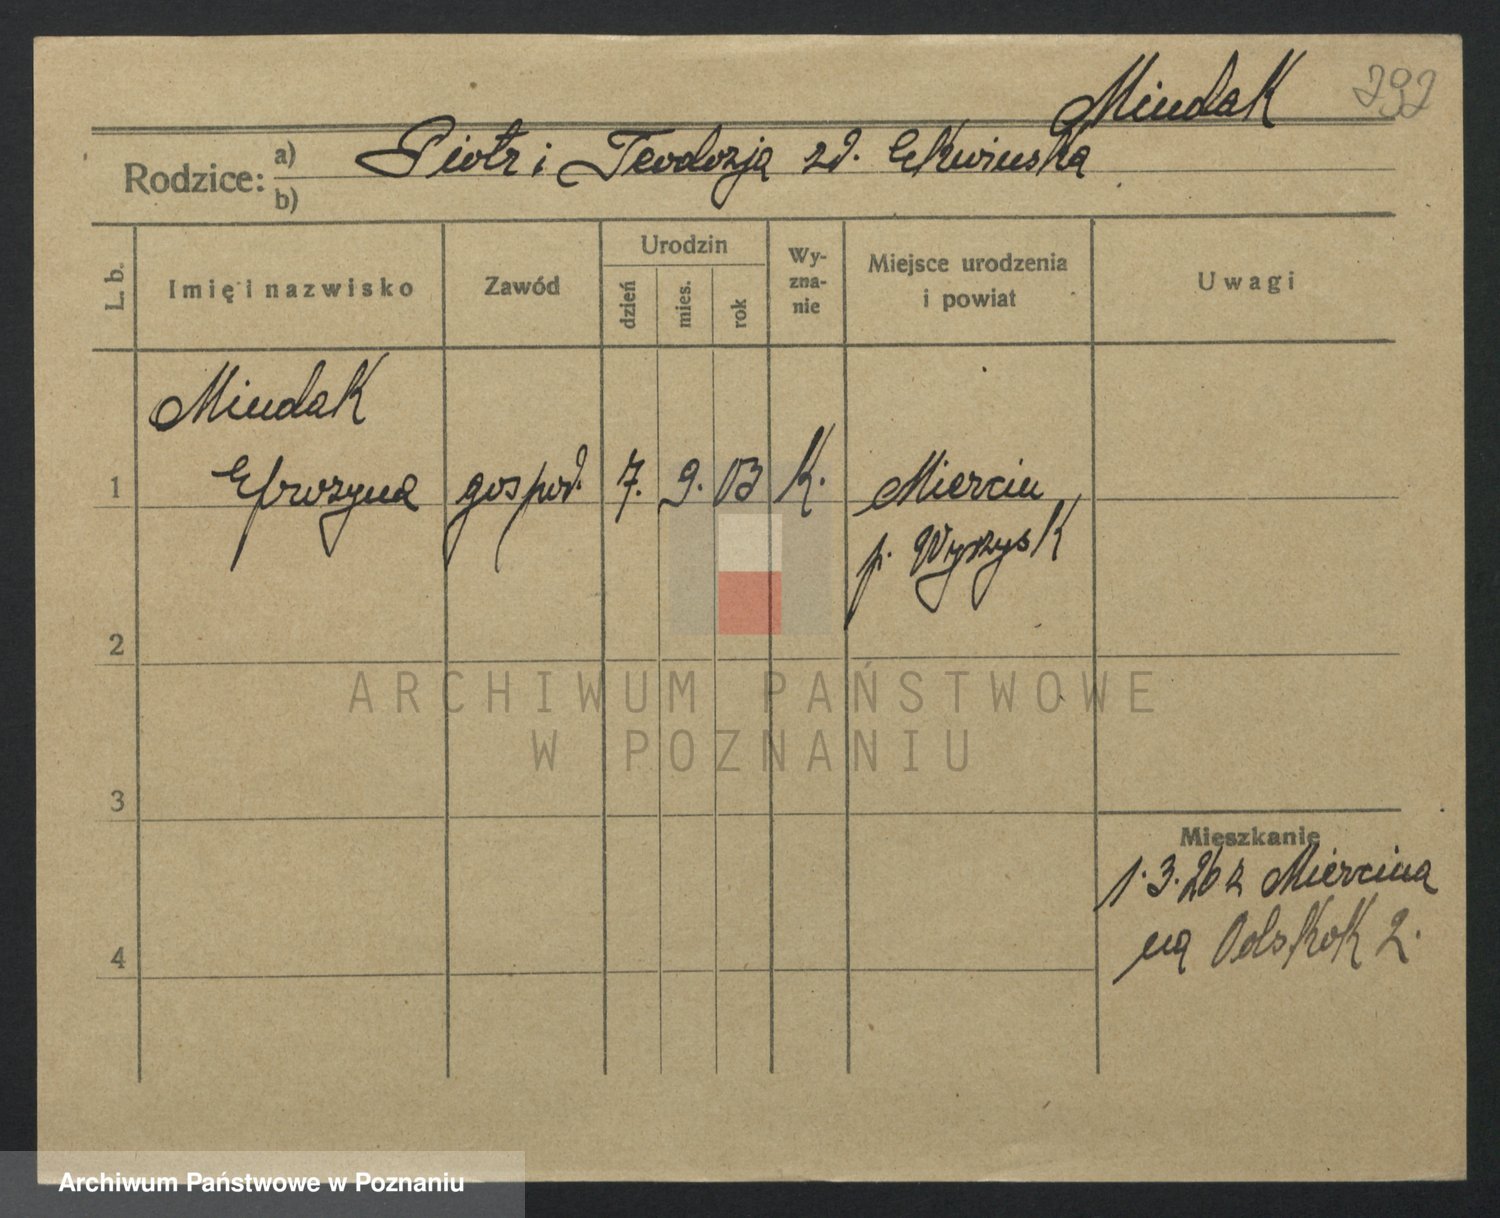 Mindak 292
Rodzice: a) b) Piotr i Teodozja zd. Ekwinska
L. b. Imię i nazwisko Zawód Urodzin dzień mies. rok Wy-zna-nie Miejsce urodzenia i powiat Uwagi
Mindak
1 Efrozyna gospod. 7. 9. 03 K. Miercin
p. Wyrzysk
2
ARCHIWUM PAŃSTWOWE
W POZNANIU
3
Mieszkanie
1.3.26 z Miercina
4 na Odskok 2.
Archiwum Państwowe w Poznaniu